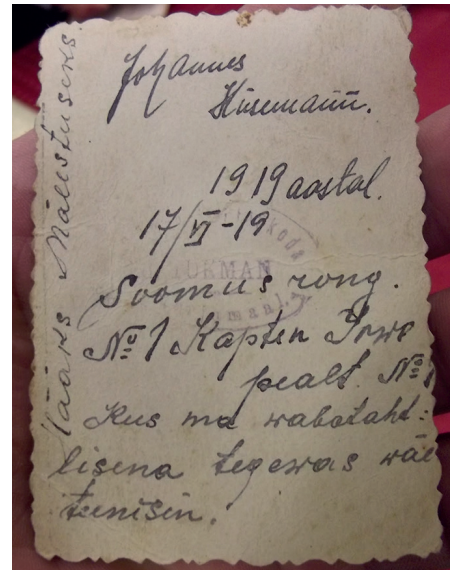 Johannes
Hüsemann.
1919 aastal.
17/VI-19
Soomus rong.
№ 1 Kapten Irwe
pealt. №
Kus ma wabataht-
lisena tegewas wäe
teenisin.
Mälestuseks.
TUKMAN